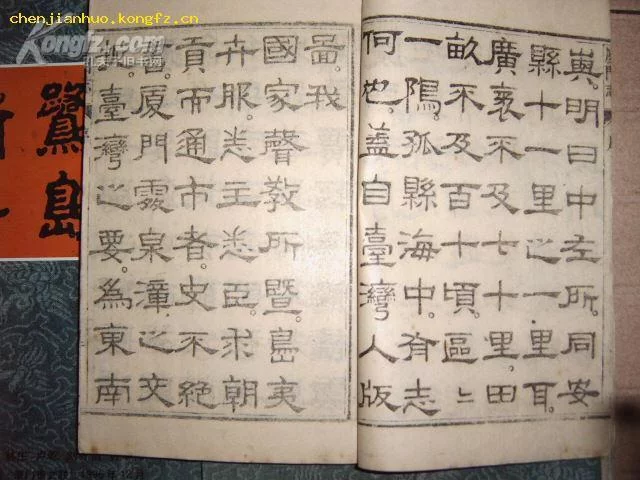 chenjianhuo.kongfz.cn
Kongfz.com
孔夫子旧书网
嶼。明曰中左所。同安
縣十一里之一里耳。
廣袤不及七十里田
畝不及百十頃區〻
一隅孤縣海中。有志
何也。蓋自臺灣人版
啚。我
國家聲教所暨。島夷
卉服。悉主悉臣。求朝
貢而通市者。史不絕
書。廈門處泉漳之交。
臺灣之要。為東南
鷺島